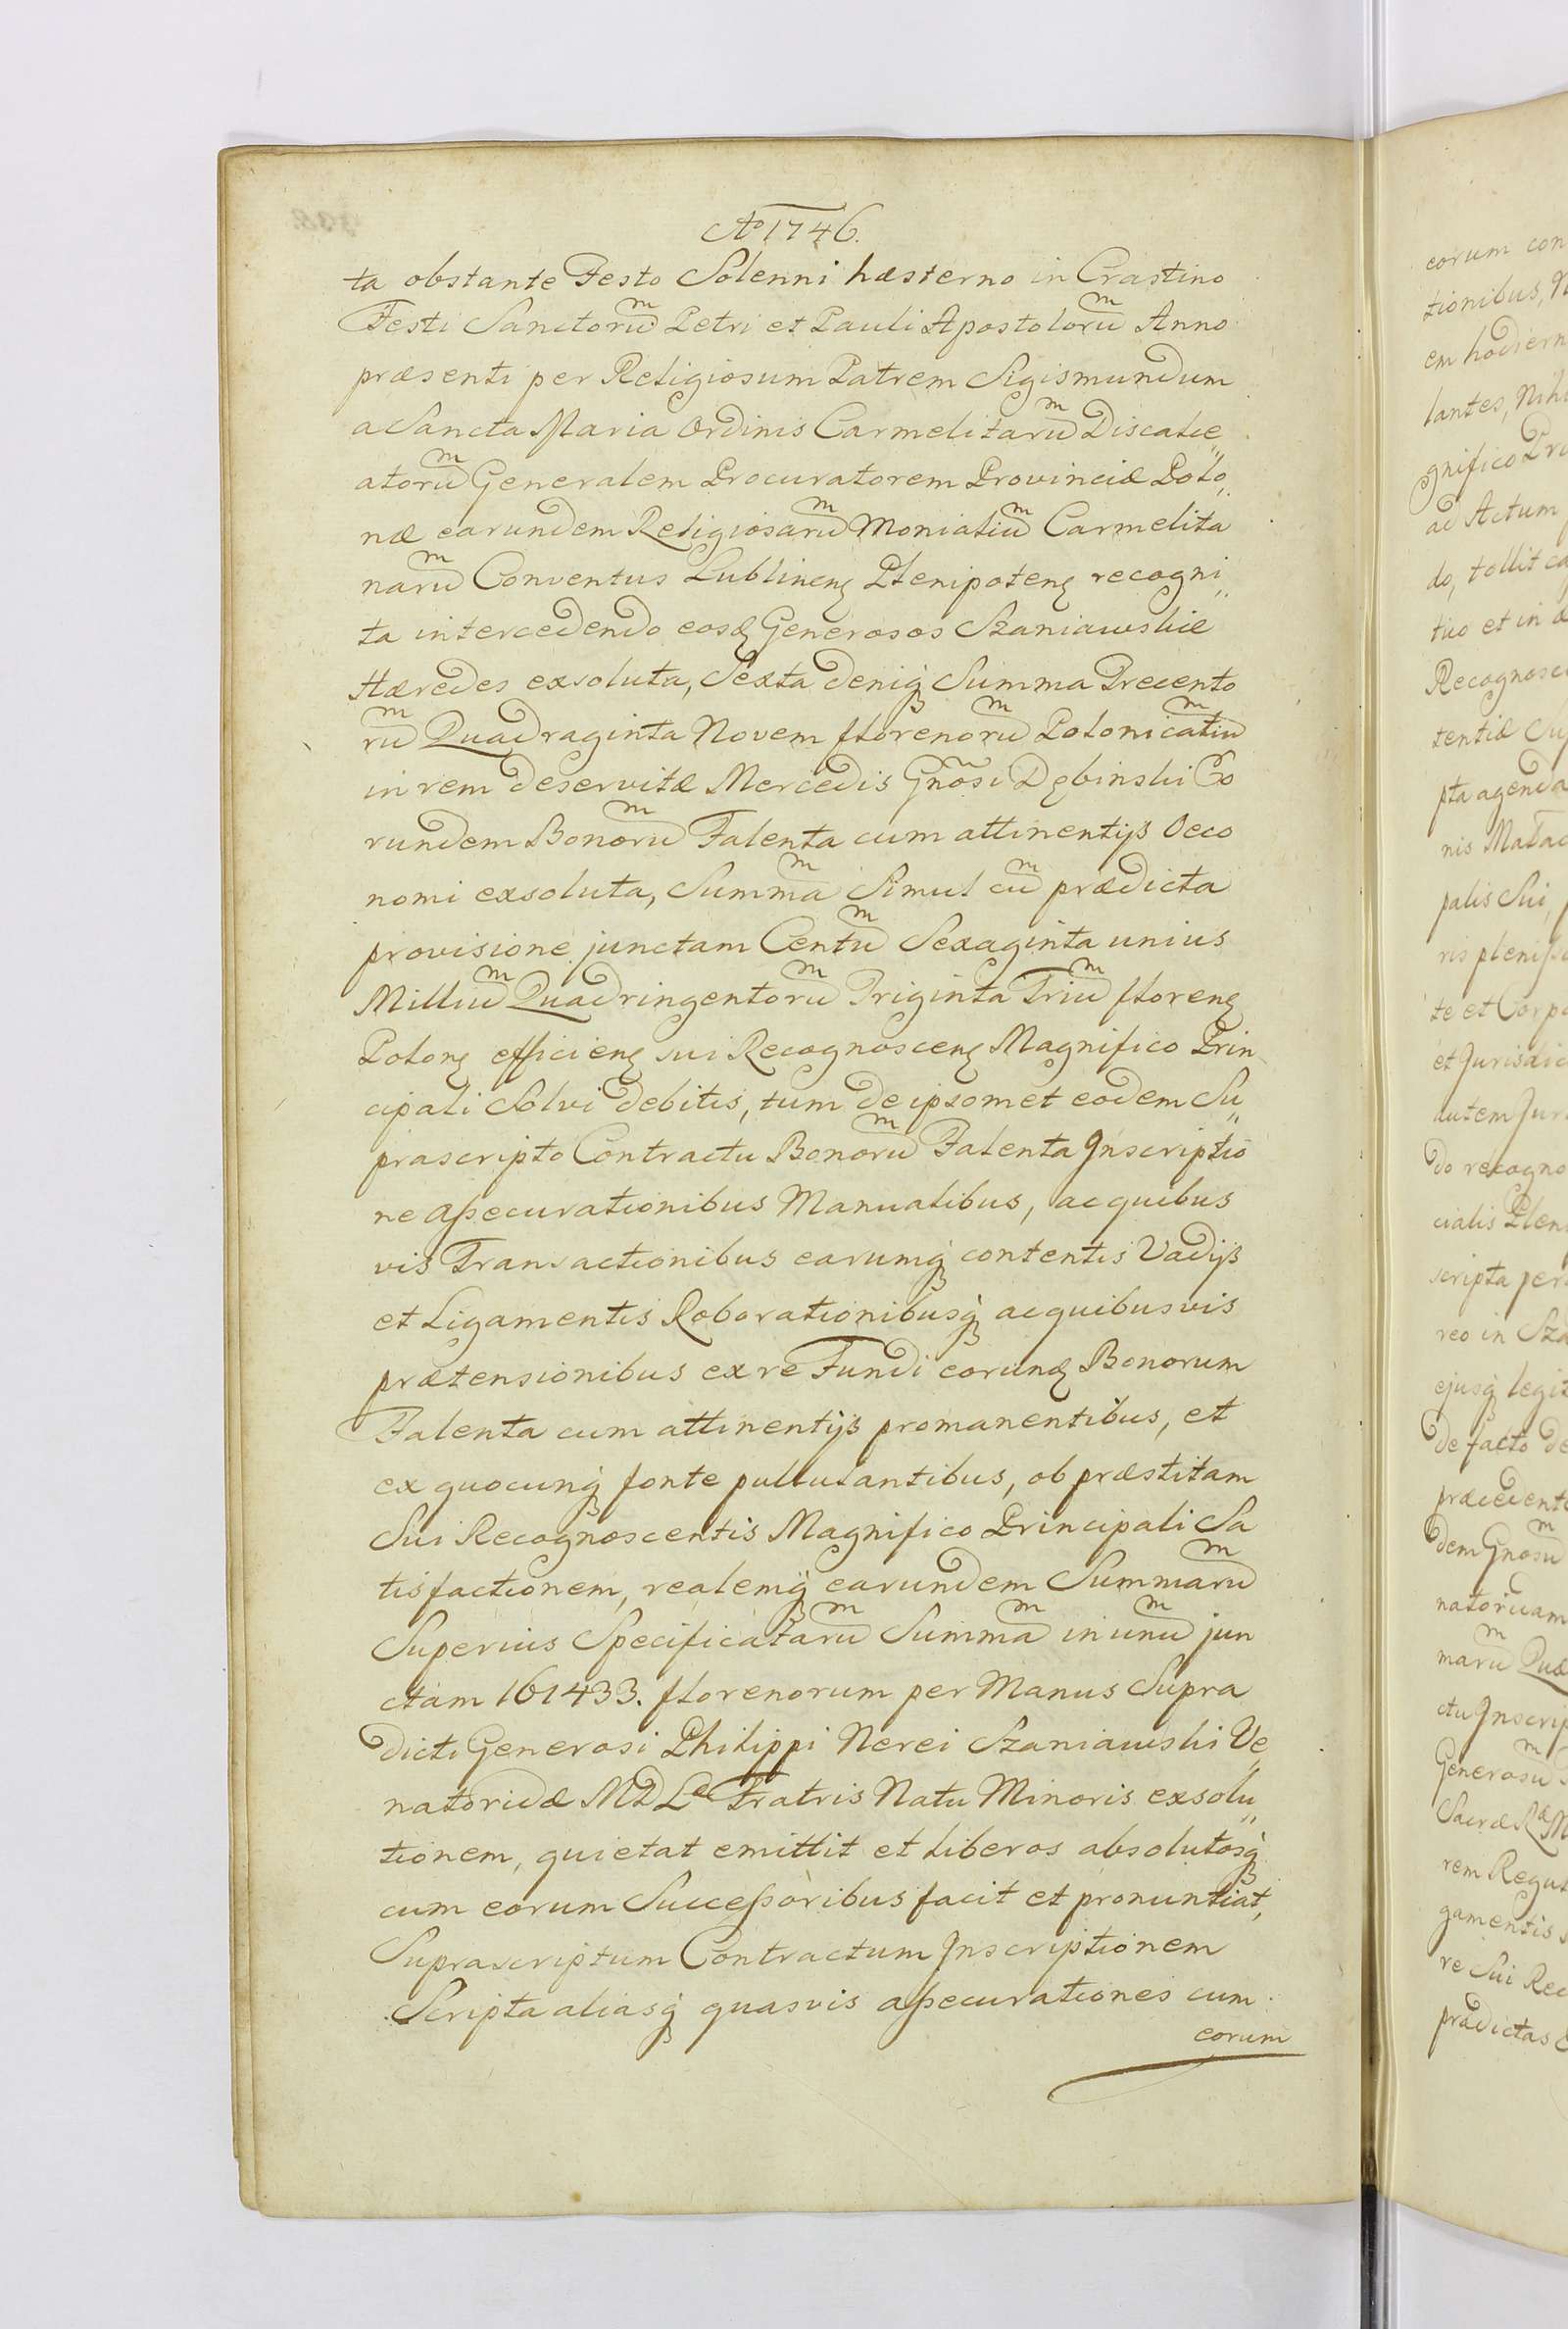 Aº 1746.
ta obstante Festo Solenni hæsterno in Crastino
Festi Sanctorum Petri et Pauli Apostolorum Anno
præsenti per Religiosum Patrem Sigismundum
a Sancta Maria Ordinis Carmelitarum Discalce„
atorum Generalem Procuratorem Provinciæ Polo„
næ earundem Religiosarum Monialium Carmelita
narum Conventus Lublinen̨ Plenipoten̨ recogni„
ta intercedendo eosd̨ Generosos Szaniawskie
Hæredes exsoluta, Sexta deniq̨ Summa Trecento
rum Quadraginta Novem florenorum Polonicalium
in rem deservitæ Mercedis Gnosi Dębinski Eo
rundem Bonorum Talenta cum attinentijs Oeco
nomi exsoluta, Summam Simul cum prædicta
provisione junctam Centum Sexaginta unius
Millium Quadringentorum Triginta Trium floren̨
Polon̨ efficien̨ sui Recognoscen̨ Magnifico Prin
cipali Solvi debitis, tum de ipsomet eodem Su„
prascripto Contractu Bonorum Talenta Inscriptio
ne aßecurationibus Manualibus, ac quibus
vis Transactionibus earumq̨ contentis Vadijs
et Ligamentis Roborationibusq̨ ac quibusvis
prætensionibus ex re Fundi eorund̨ Bonorum
Talenta cum attinentijs promanentibus, et
ex quocunq̨ fonte pullulantibus, ob præstitam
Sui Recognoscentis Magnifico Principali Sa
tisfactionem, realemq̨ earundem Summarum
Superius Specificatarum Summam in unum jun
ctam 161433. florenorum per Manus Supra
dicti Generosi Philippi Nerei Szaniawski Ve„
natoridæ MD Læ Fratris Natu Minoris exsolu„
tionem, quietat emittit et liberos absolutosq̨
cum eorum Succeßoribus facit et pronuntiat,
Suprascriptum Contractum Inscriptionem
Scripta aliasq̨ quasvis aßecurationes cum
eorum
eorum con
tionibus,
em hodiern
lantes, Nihi
gnifico Pri
ad Actum
do, tollit ca
tuo et in
Recognosce
tentiæ Su
pta agenda
nis
palis Sui,
ris pleniß
te et Corpo
et Jurisdic
autem Jur
do recogno
cialis Plen
scripta per
reo in Sza
ejusq̨ legit
de facto de
præcedent
dem Gnosum
natoridam
marum Quæ
ctu Inscrip
Generosum
Sacræ Ræ M
rem Regul
gamentis
re Sui Rec
prædictas